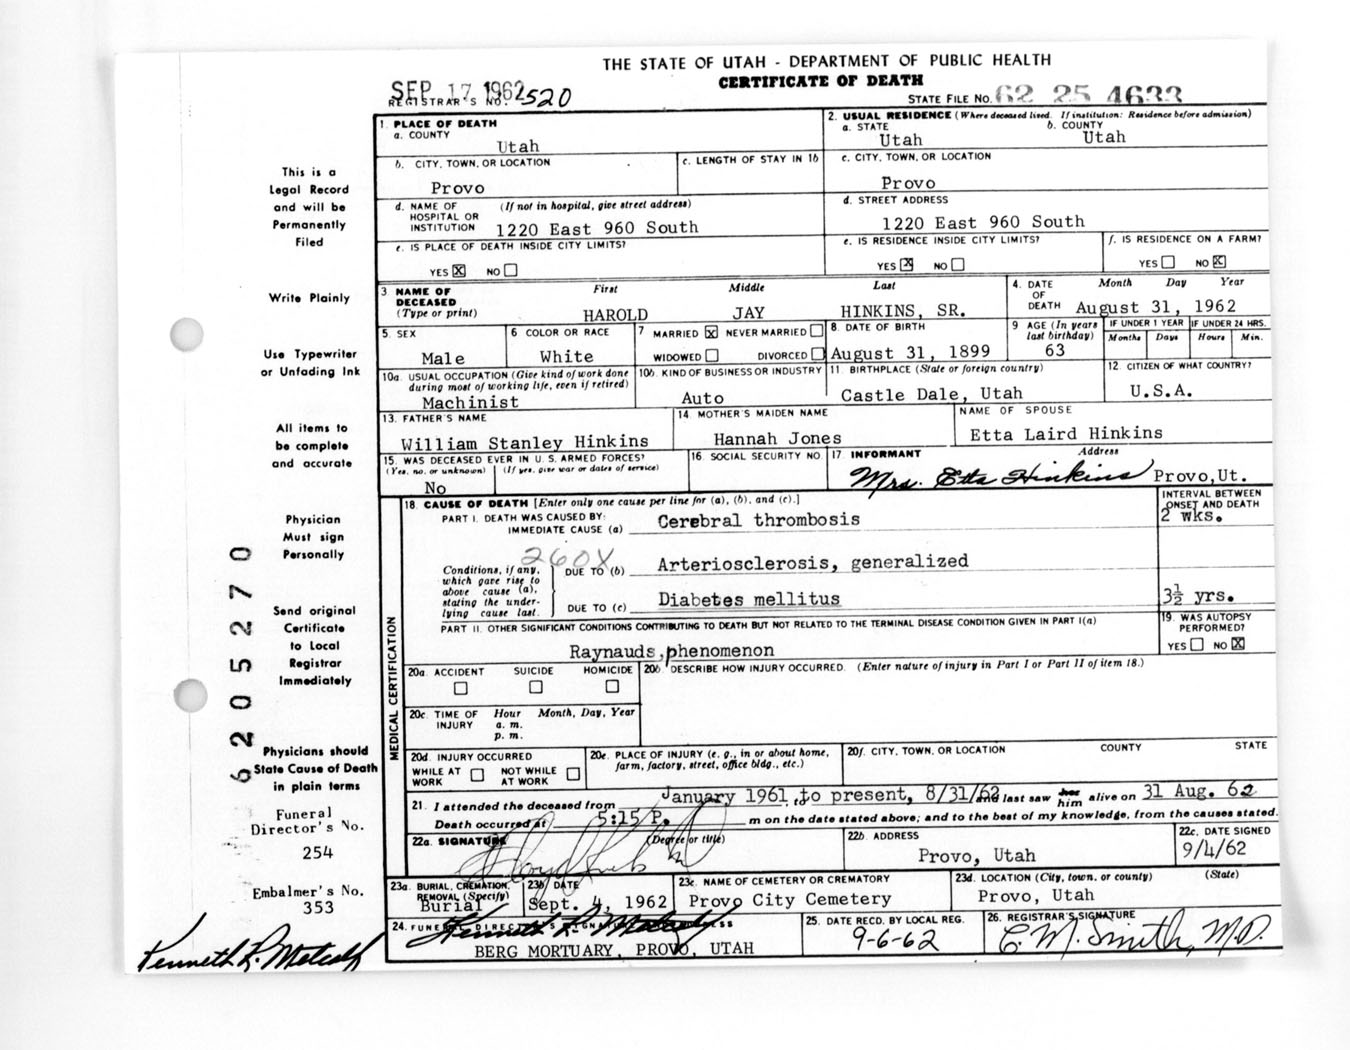 THE STATE OF UTAH - DEPARTMENT OF PUBLIC HEALTH
CERTIFICATE OF DEATH
SEP 17 1962
REGISTRAR'S NO. 520
STATE FILE NO. 62 25 4633
1. PLACE OF DEATH
a. COUNTY
Utah
2. USUAL RESIDENCE (Where deceased lived. If institution: Residence before admission)
a. STATE b. COUNTY
Utah Utah
b. CITY, TOWN, OR LOCATION c. LENGTH OF STAY IN 1b
Provo
c. CITY, TOWN, OR LOCATION
Provo
d. NAME OF HOSPITAL OR INSTITUTION (If not in hospital, give street address)
1220 East 960 South
d. STREET ADDRESS
1220 East 960 South
e. IS PLACE OF DEATH INSIDE CITY LIMITS?
YES X NO
e. IS RESIDENCE INSIDE CITY LIMITS?
YES X NO
f. IS RESIDENCE ON A FARM?
YES NO X
3. NAME OF DECEASED (Type or print) First Middle Last
HAROLD JAY HINKINS, SR.
4. DATE OF DEATH Month Day Year
August 31, 1962
5. SEX
Male
6 COLOR OR RACE
White
7 MARRIED X NEVER MARRIED
WIDOWED DIVORCED
8. DATE OF BIRTH
August 31, 1899
9 AGE (In years last birthday)
63
IF UNDER 1 YEAR IF UNDER 24 HRS.
Months Days Hours Min.
10a. USUAL OCCUPATION (Give kind of work done during most of working life, even if retired)
Machinist
10b. KIND OF BUSINESS OR INDUSTRY
Auto
11. BIRTHPLACE (State or foreign country)
Castle Dale, Utah
12. CITIZEN OF WHAT COUNTRY?
U.S.A.
13. FATHER'S NAME
William Stanley Hinkins
14. MOTHER'S MAIDEN NAME
Hannah Jones
NAME OF SPOUSE
Etta Laird Hinkins
15. WAS DECEASED EVER IN U. S. ARMED FORCES?
(Yes, no, or unknown) (If yes, give war or dates of service)
No
16. SOCIAL SECURITY NO.
17. INFORMANT Address
Mrs. Etta Hinkins Provo, Ut.
MEDICAL CERTIFICATION
18. CAUSE OF DEATH [Enter only one cause per line for (a), (b), and (c).]
INTERVAL BETWEEN ONSET AND DEATH
PART I. DEATH WAS CAUSED BY:
IMMEDIATE CAUSE (a) Cerebral thrombosis
2 wks.
260X
Conditions, if any, which gave rise to above cause (a), stating the underlying cause last.
DUE TO (b) Arteriosclerosis, generalized
DUE TO (c) Diabetes mellitus
3½ yrs.
PART II. OTHER SIGNIFICANT CONDITIONS CONTRIBUTING TO DEATH BUT NOT RELATED TO THE TERMINAL DISEASE CONDITION GIVEN IN PART I(a)
Raynauds phenomenon
19. WAS AUTOPSY PERFORMED?
YES NO X
20a. ACCIDENT SUICIDE HOMICIDE
20b. DESCRIBE HOW INJURY OCCURRED. (Enter nature of injury in Part I or Part II of item 18.)
20c. TIME OF INJURY Hour Month, Day, Year
a. m.
p. m.
20d. INJURY OCCURRED
WHILE AT WORK NOT WHILE AT WORK
20e. PLACE OF INJURY (e. g., in or about home, farm, factory, street, office bldg., etc.)
20f. CITY, TOWN, OR LOCATION COUNTY STATE
21. I attended the deceased from January 1961, to present, 8/31/62 and last saw her him alive on 31 Aug. 62
Death occurred at 5:15 P. m on the date stated above; and to the best of my knowledge, from the causes stated.
22a. SIGNATURE (Degree or title)
22b. ADDRESS
Provo, Utah
22c. DATE SIGNED
9/4/62
23a. BURIAL, CREMATION, REMOVAL (Specify)
Burial
23b. DATE
Sept. 4, 1962
23c. NAME OF CEMETERY OR CREMATORY
Provo City Cemetery
23d. LOCATION (City, town, or county) (State)
Provo, Utah
24. FUNERAL DIRECTOR'S SIGNATURE ADDRESS
Kenneth R. Metcalf
BERG MORTUARY, PROVO, UTAH
25. DATE RECD. BY LOCAL REG.
9-6-62
26. REGISTRAR'S SIGNATURE
C. M. Smith, M.D.
This is a
Legal Record
and will be
Permanently
Filed
Write Plainly
Use Typewriter
or Unfading Ink
All items to
be complete
and accurate
Physician
Must sign
Personally
Send original
Certificate
to Local
Registrar
Immediately
Physicians should
State Cause of Death
in plain terms
Funeral
Director's No.
254
Embalmer's No.
353
Kenneth R. Metcalf
62052 70